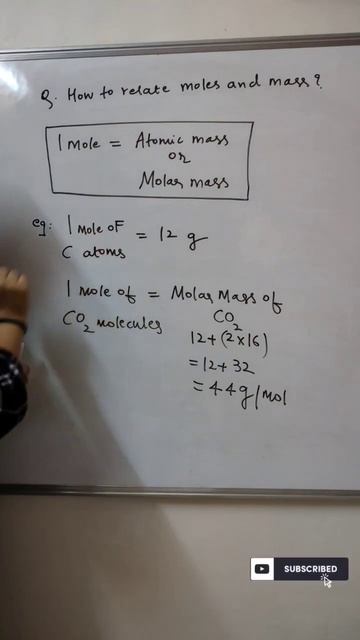 Q. How to relate moles and mass?
1 Mole = Atomic mass
or
Molar mass
eg: 1 Mole of C atoms = 12 g
1 Mole of CO2 molecules = Molar Mass of CO2
12+(2×16)
=12+32
=44g/mol
SUBSCRIBED